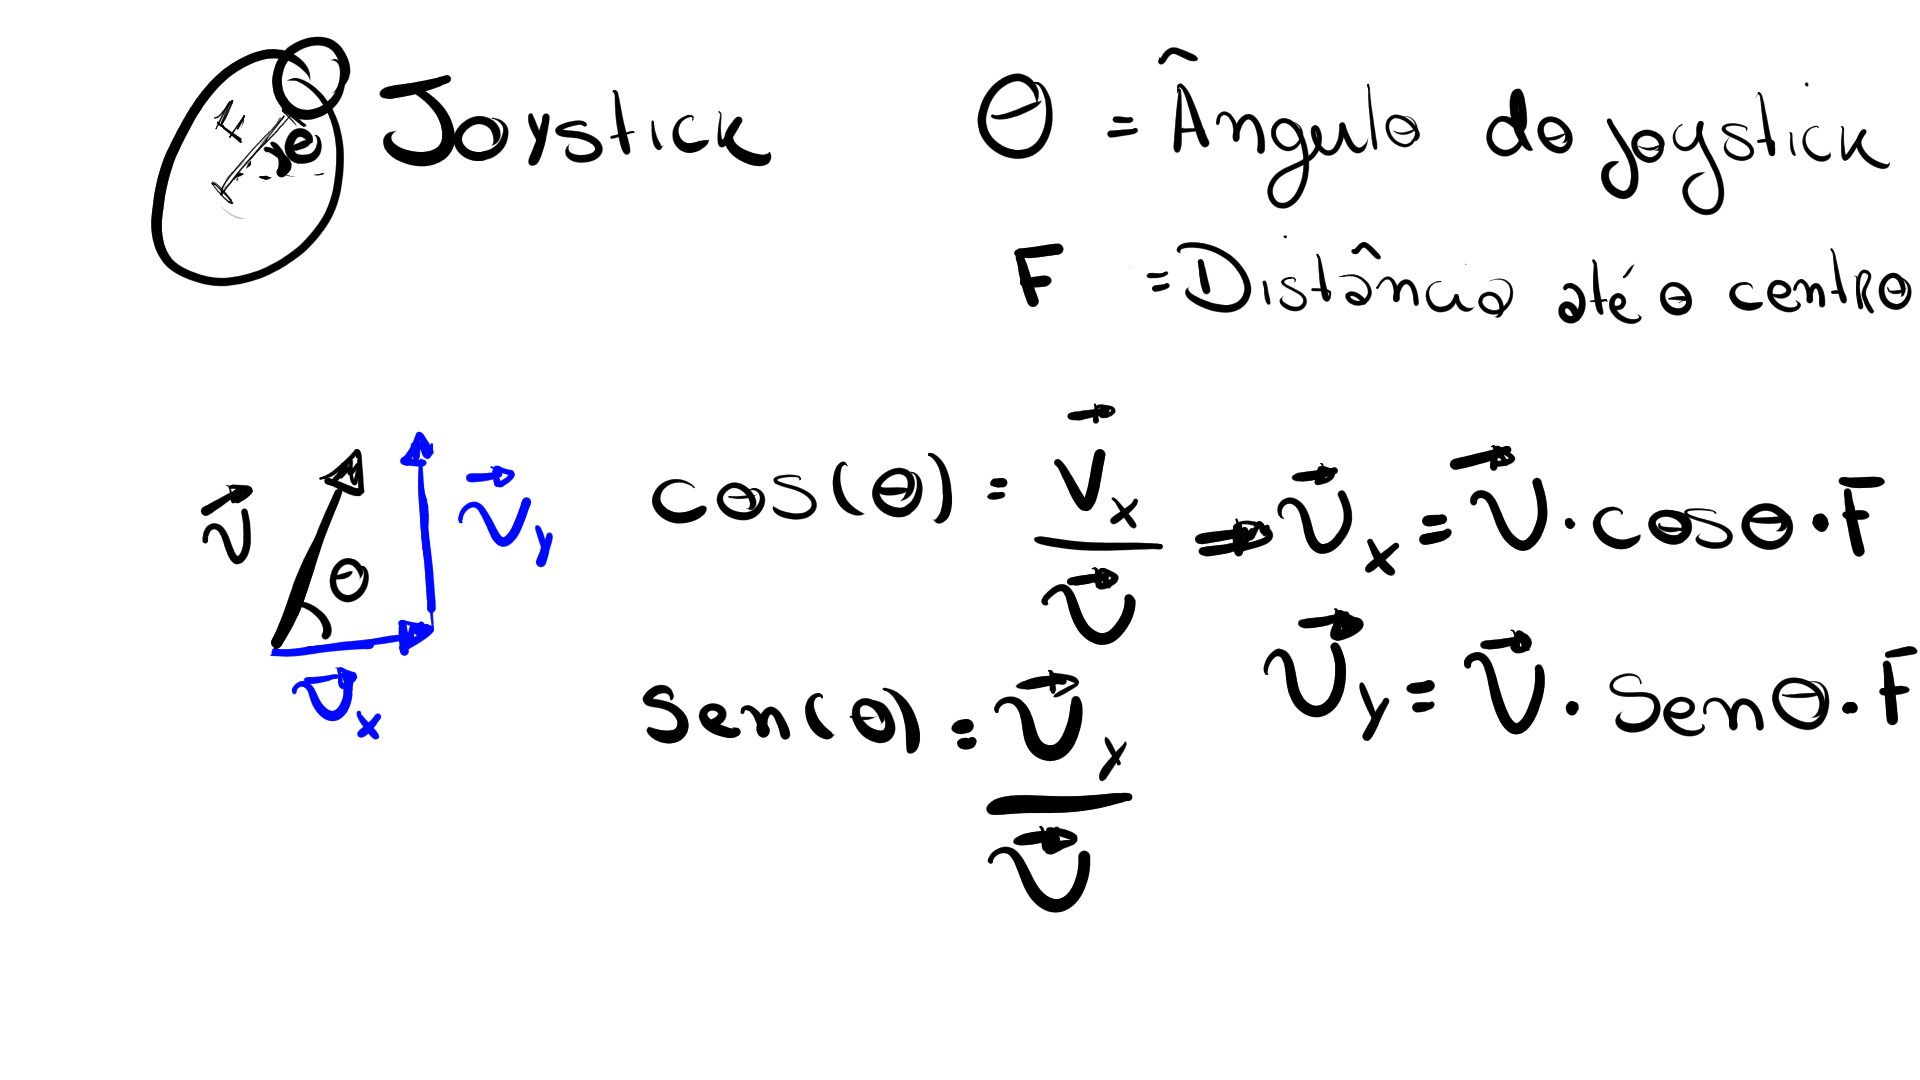 F
θ
Joystick
θ = Ângulo do joystick
F = Distância até o centro
v⃗
θ
v⃗y
v⃗x
cos(θ) = v⃗x / v⃗ ⇒ v⃗x = v⃗ · cosθ · F
sen(θ) = v⃗y / v⃗
v⃗y = v⃗ · senθ · F